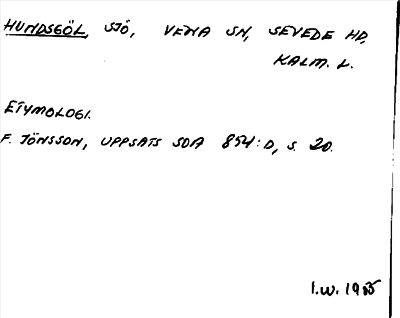 HUNDSGÖL, SJÖ, VENA SN, SEVEDE HD,
KALM. L.
ETYMOLOGI.
F. JÖNSSON, UPPSATS SOA 854:D, S. 20.
I.W. 1985